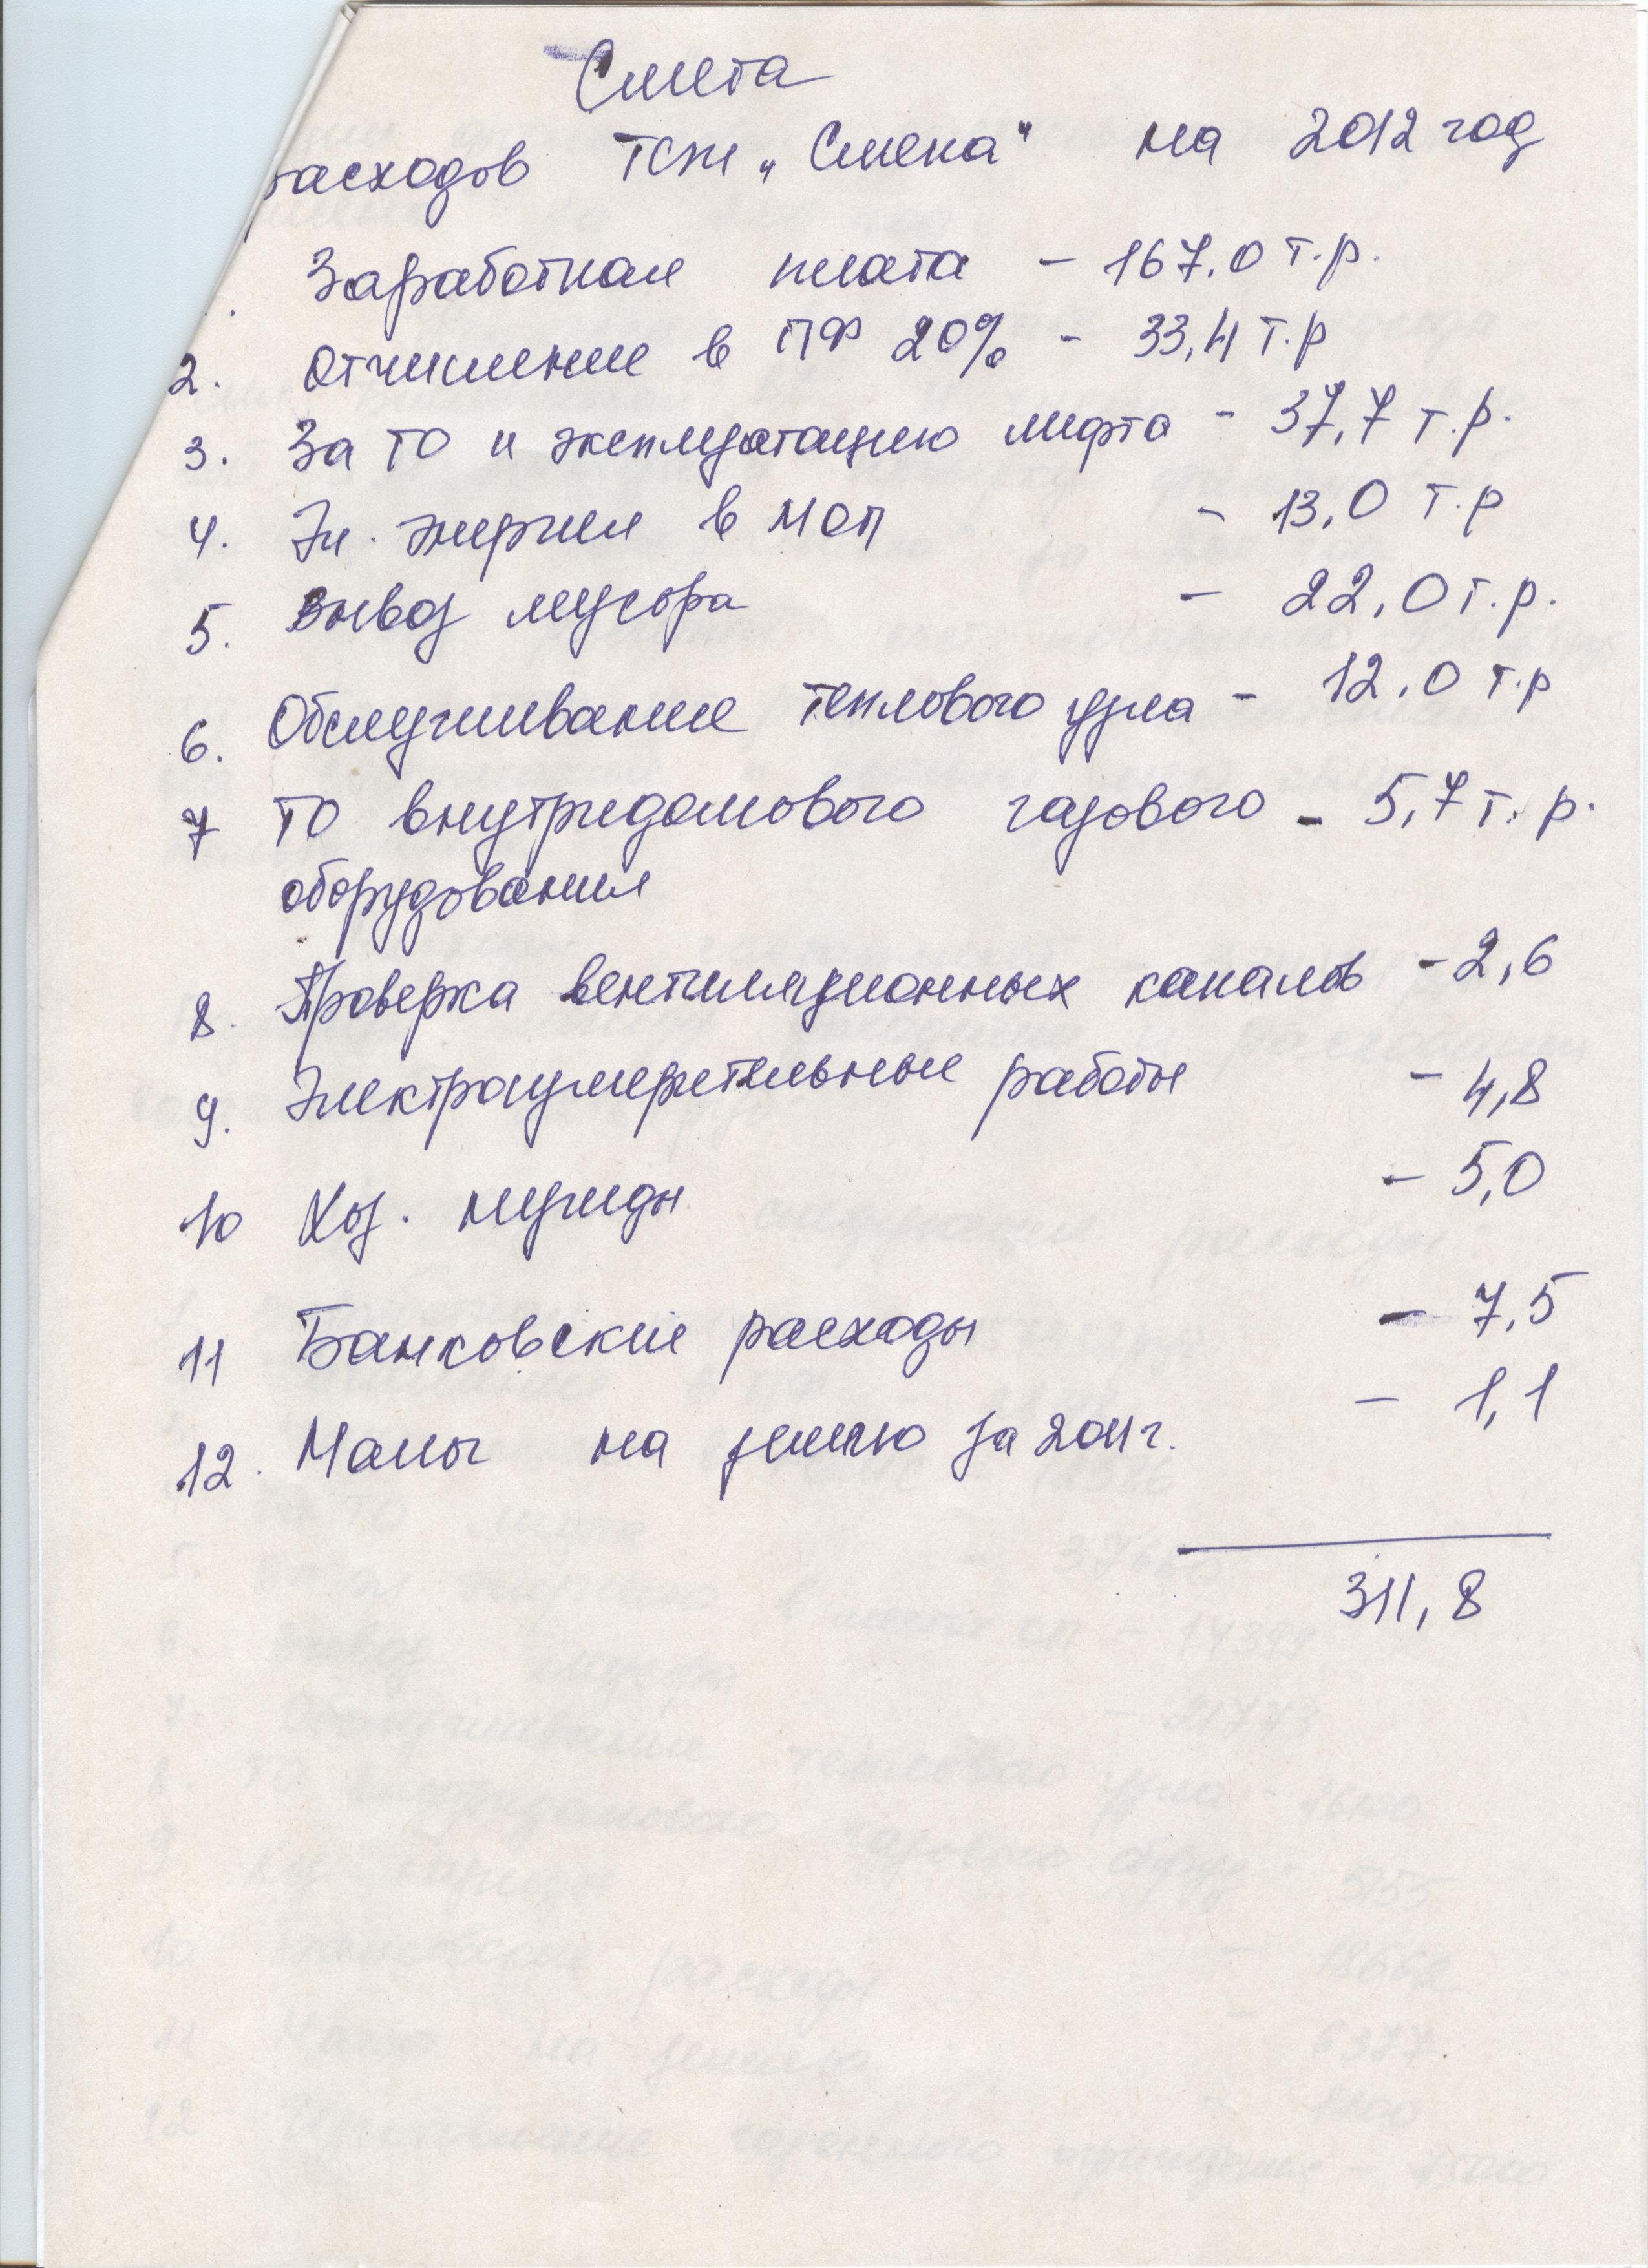 Смета
расходов ТСЖ „Смена" на 2012 год
. Заработная плата - 167.0 т.р.
2. Отчисление в ПФ 20% - 33,4 т.р
3. За ТО и эксплуатацию лифта - 37,7 т.р.
4. Эл. энергия в МОП - 13,0 т.р
5. Вывоз мусора - 22,0 т.р.
6. Обслуживание теплового узла - 12.0 т.р
7 ТО внутридомового газового - 5,7 т. р.
оборудования
8. Проверка вентиляционных каналов - 2,6
9. Электроизмерительные работы - 4,8
10 Хоз. нужды - 5,0
11 Банковские расходы - 7,5
12. Налог на землю за 2011 г. - 1,1
311,8